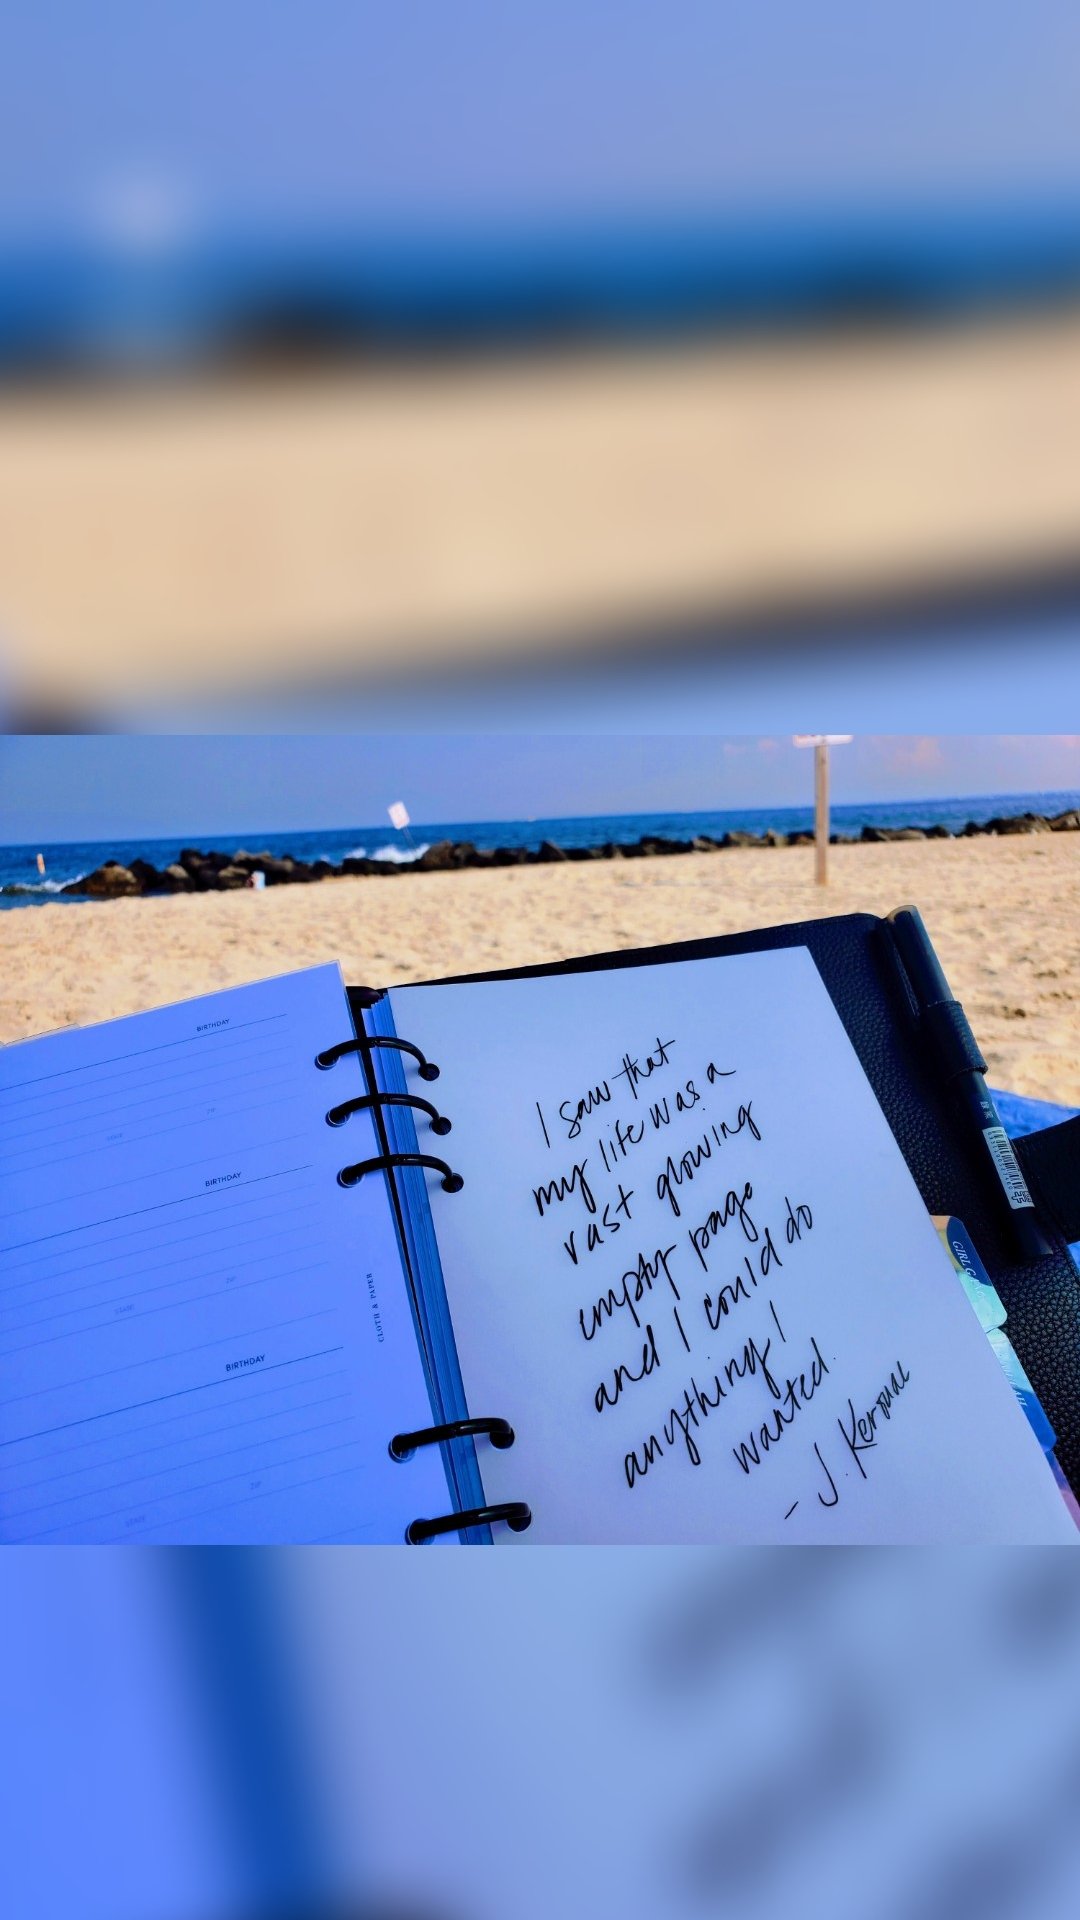 BIRTHDAY
ZIP
STATE
BIRTHDAY
ZIP
STATE
BIRTHDAY
ZIP
STATE
CLOTH & PAPER
I saw that
my life was a
vast glowing
empty page
and I could do
anything I
wanted.
- J. Kerouac
GIRL